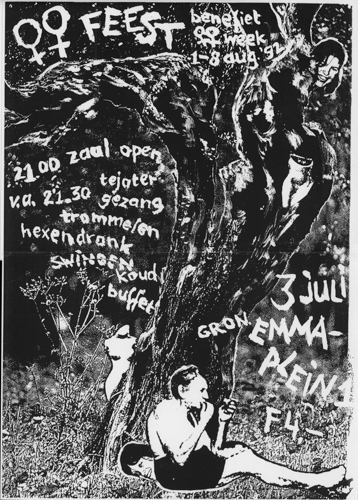 ♀♀ FEEST
benefiet
♀♀ week
1-8 aug '92
21.00 zaal open
tejater
v.a. 21.30 gezang
trommelen
hexendrank
SWINGEN
koud
buffet
3 juli
GRON. EMMA-
PLEIN 1
F4,-